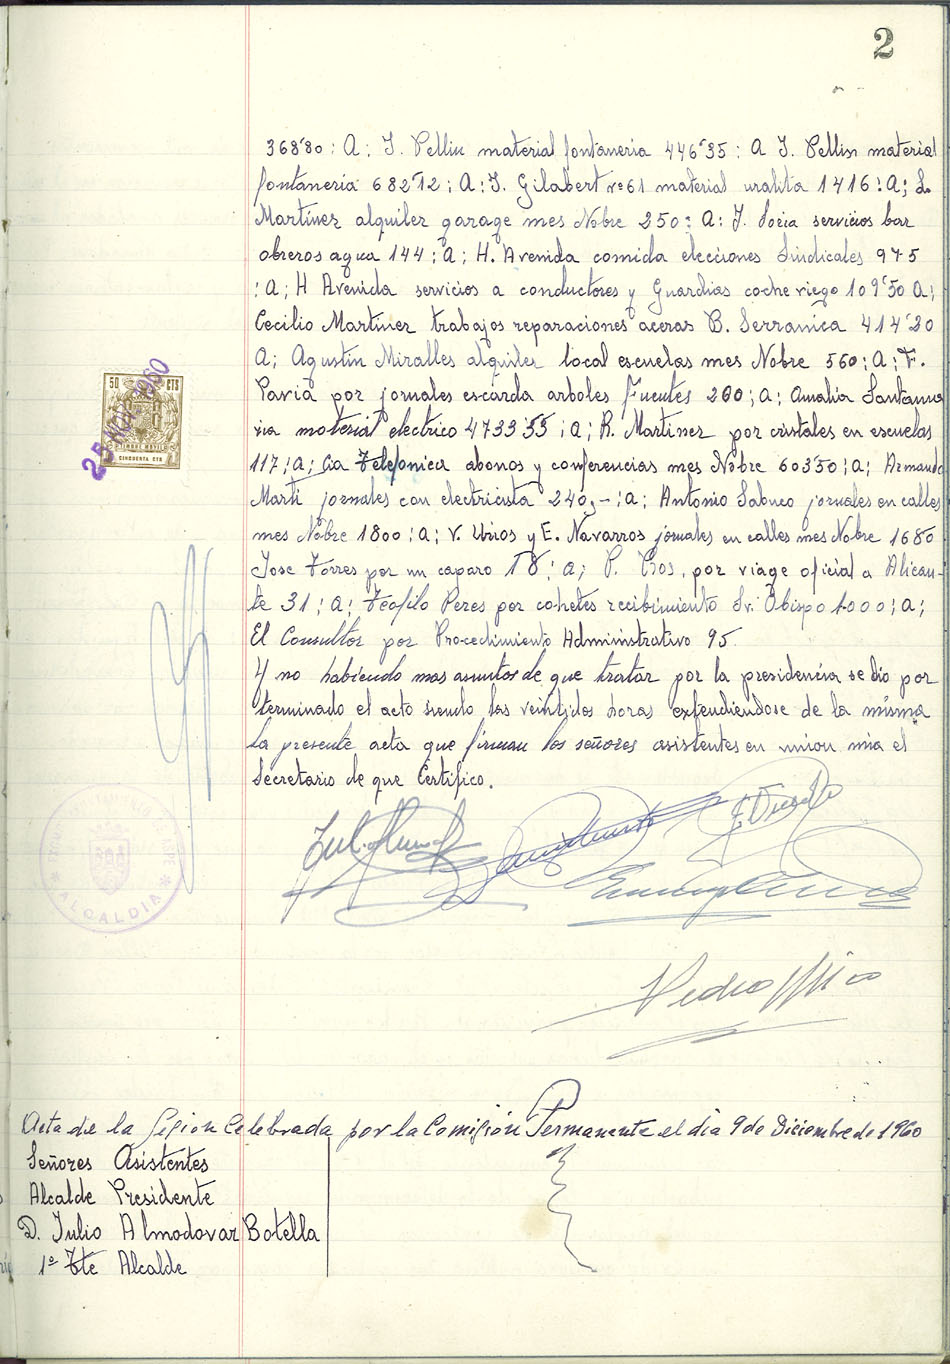 2
368'80: A: J. Pellin material fontaneria 446'35: A J. Pellin material
fontaneria 682'12; A: J. Gilabert nº 61 material uralita 1416: A; L.
Martinez alquiler garage mes Nobre 250: A: J. Soria servicios bar
obreros agua 144; A; H. Avenida comida elecciones Sindicales 975
: A; H Avenida servicios a conductores y Guardias coche riego 109'50 A;
Cecilio Martinez trabajos reparaciones aceras B. Serranica 414'20
A; Agustin Miralles alquiler local escuelas mes Nobre 560; A; F.
Pavia por jornales escarda arboles Fuentes 260; A; Amalia Santama
ria material electrico 4733'55; A; R. Martinez por cristales en escuelas
117; A; Cia Telefonica abonos y conferencias mes Nobre 603'50; A; Armando
Marti jornales con electricista 240,-; A; Antonio Sabuco jornales en calles
mes Nobre 1800; A; V. Urios y E. Navarros jornales en calles mes Nobre 1680
Jose Torres por un caparo 18; A; P. Cros, por viage oficial a Alican-
te 31; A; Teofilo Peres por cohetes recibimiento Sr. Obispo 1000; A;
El Consultor por Procedimiento Administrativo 95.
Y no habiendo mas asuntos de que tratar por la presidencia se dio por
terminado el acto siendo las veintidos horas extendiendose de la misma
la presente acta que firman los señores asistentes en union mia el
Secretario de que Certifico.
50 CTS
CINCUENTA CTS
25 NOV. 1960
AYUNTAMIENTO DE ASPE
* ALCALDIA *
Pedro Mico
Acta de la Sesion Celebrada por la Comisión Permanente el dia 9 de Diciembre de 1960
Señores Asistentes
Alcalde Presidente
D. Julio Almodovar Botella
1º Tte Alcalde